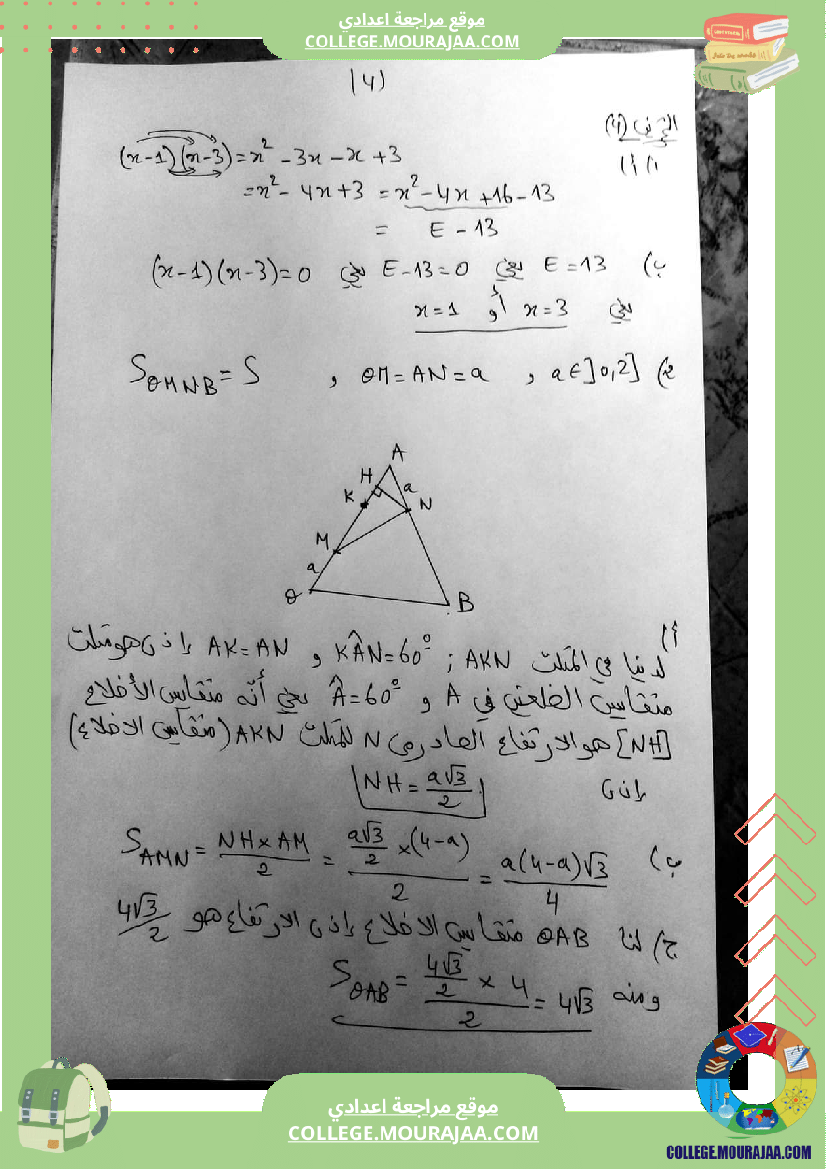 موقع مراجعة اعدادي
COLLEGE.MOURAJAA.COM
(4
(x-1)(x-3)=x² -3x -x +3
1) أ)
=x² - 4x+3 = x² -4x +16 -13
= E - 13
ب) E = 13 يعني E-13=0 يعني (x-1)(x-3)=0
يعني x=3 أو x=1
2) a∈]0,2] , OM=AN=a , S_OMNB = S
A
H
a
K
N
M
a
O
B
أ)
لدينا في المثلث AKN ; KÂN=60° و AK=AN إذن هو مثلث
متقايس الضلعين في A و Â=60° يعني أنّه متقايس الأضلاع
[NH] هو الارتفاع الصادر من N للمثلث AKN (متقايس الاضلاع)
إذن NH = a√3/2
ب) S_AMN = NH×AM/2 = (a√3/2 ×(4-a))/2 = a(4-a)√3/4
ج) لنا OAB متقايس الاضلاع إذن الارتفاع هو 4√3/2
ومنه S_OAB = (4√3/2 × 4)/2 = 4√3
موقع مراجعة اعدادي
COLLEGE.MOURAJAA.COM
COLLEGE.MOURAJAA.COM